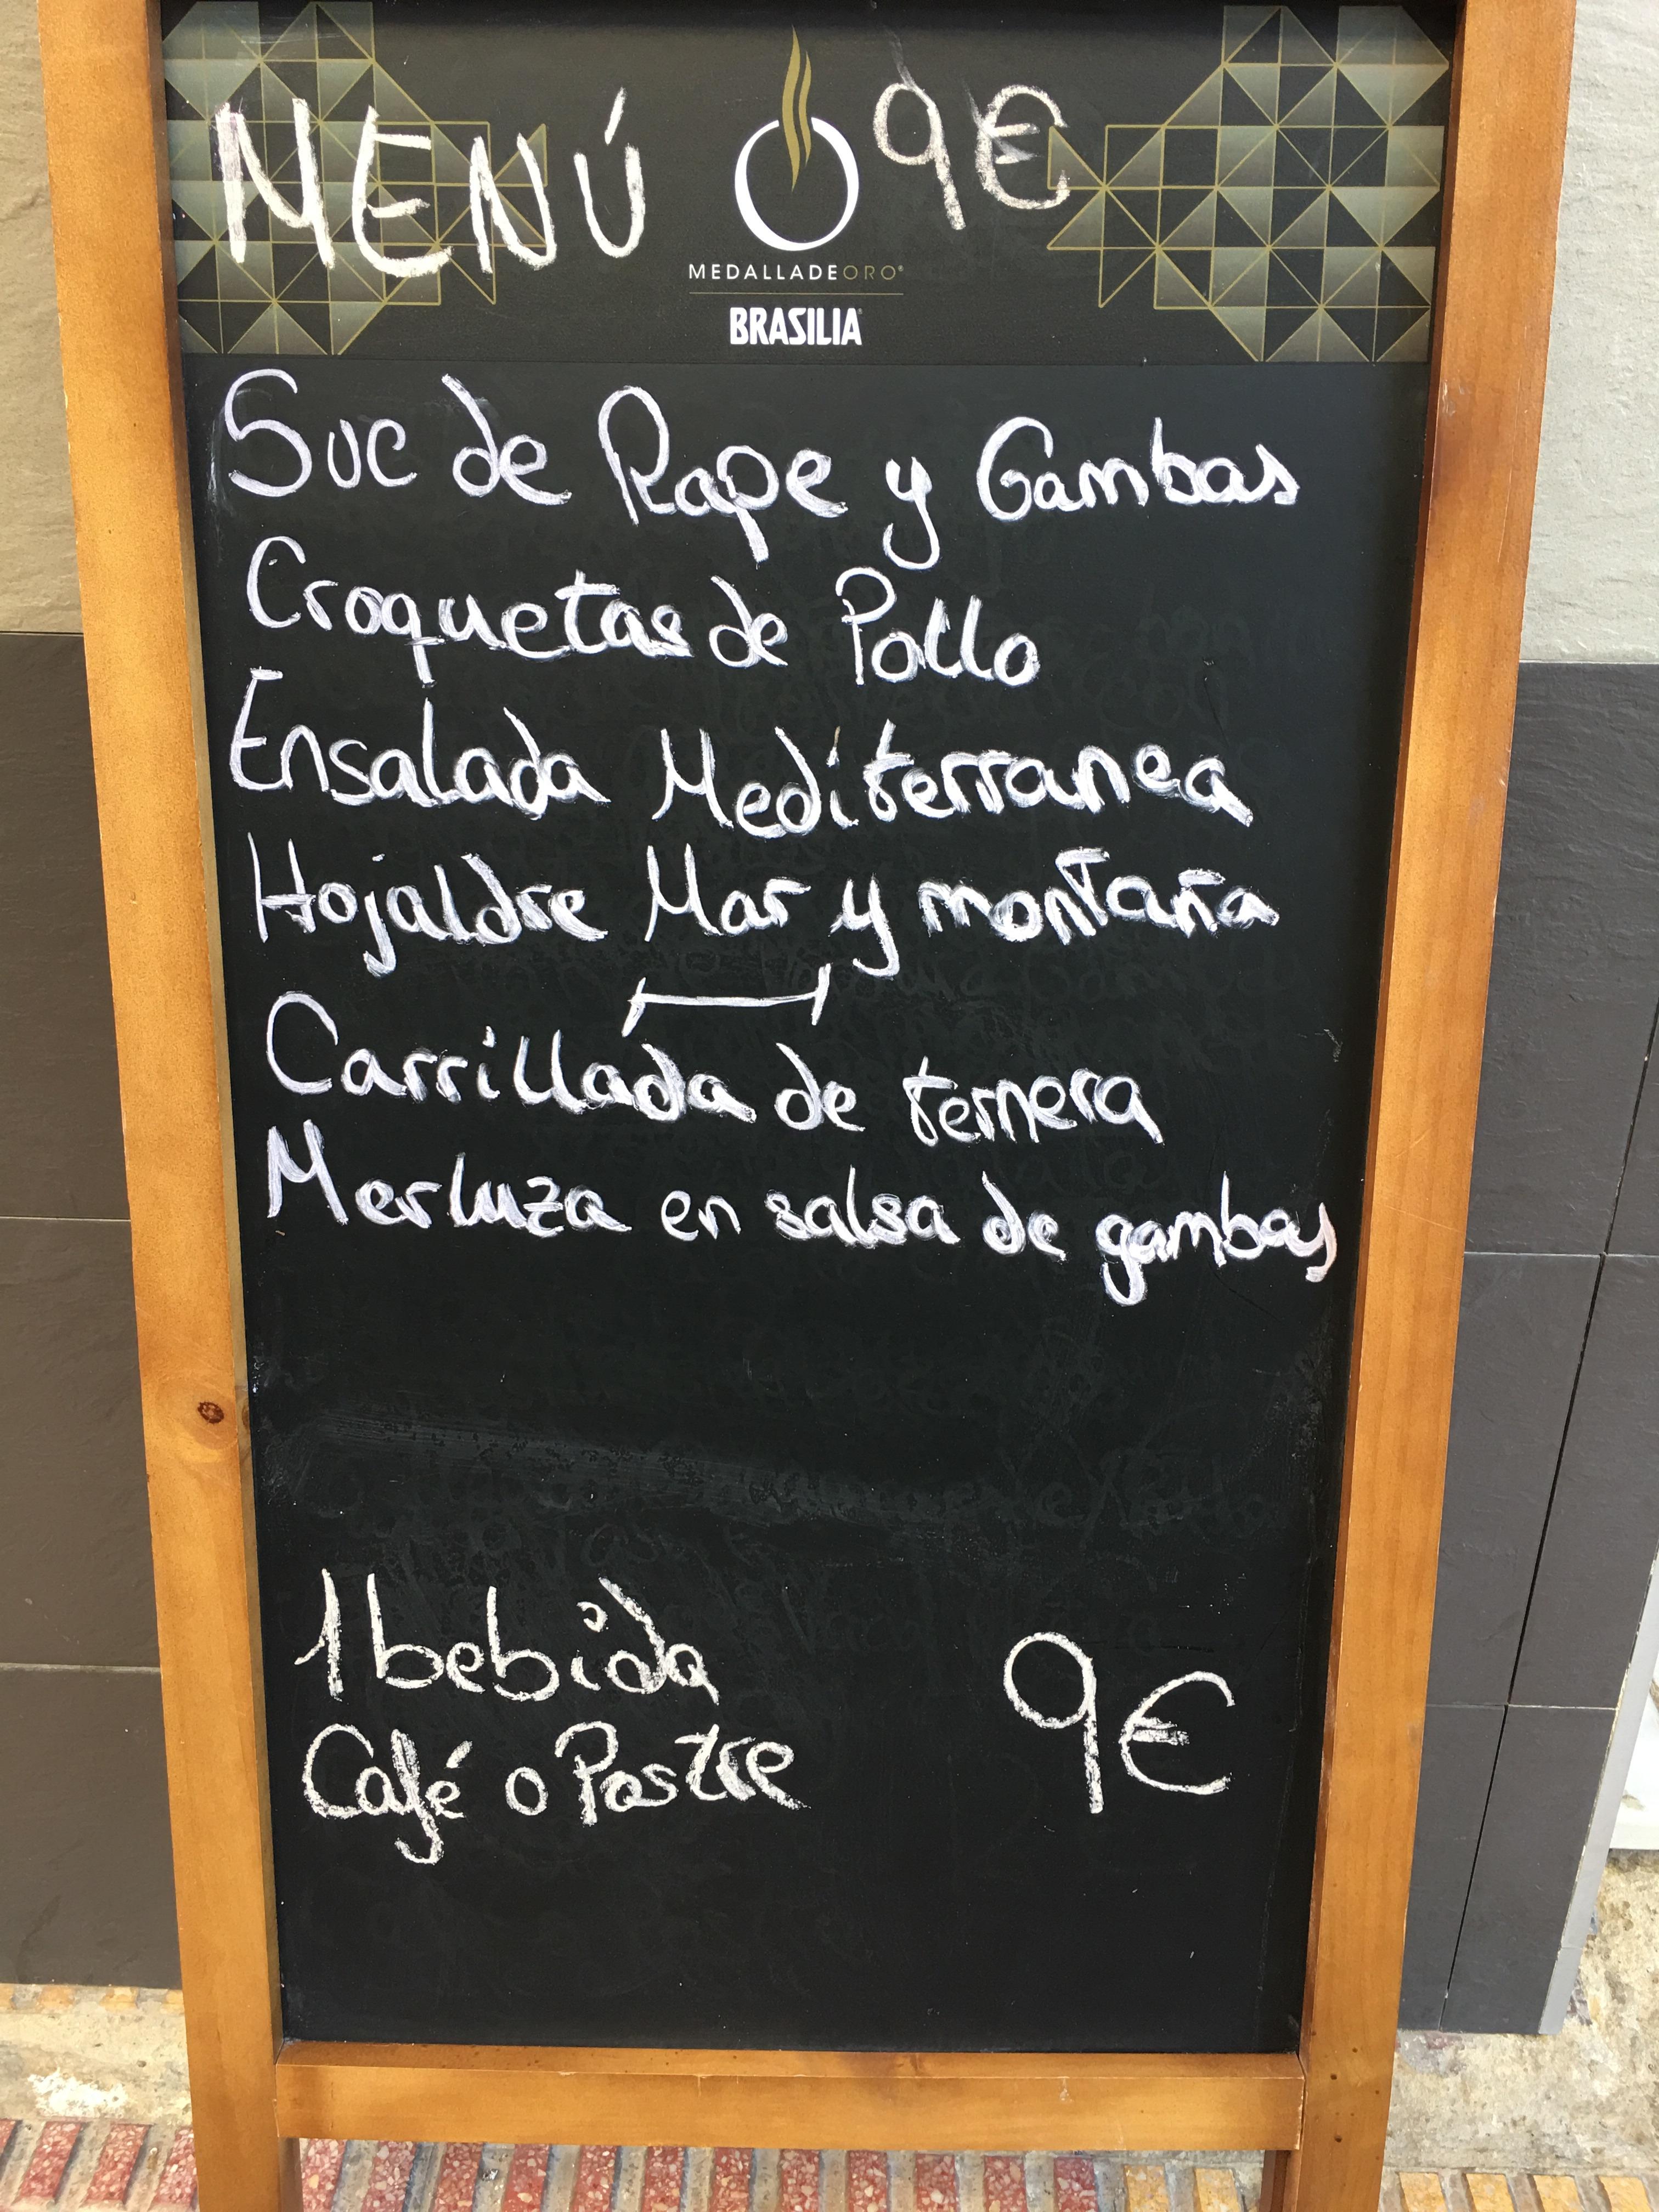 MENÚ 9€
MEDALLADEORO®
BRASILIA
Suc de Rape y Gambas
Croquetas de Pollo
Ensalada Mediterranea
Hojaldre Mar y montaña
Carrillada de ternera
Merluza en salsa de gambas
1 bebida
Café o Postre 9€